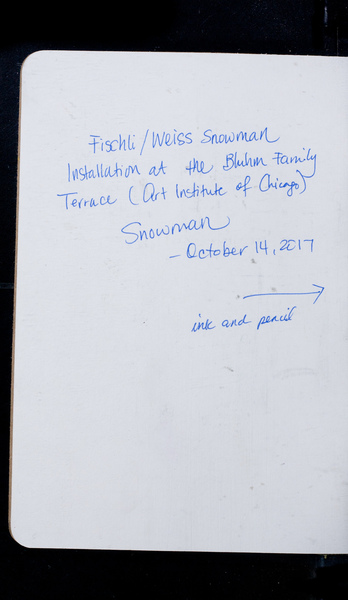 Fischli/Weiss Snowman
Installation at the Bluhm Family
Terrace (Art Institute of Chicago)
Snowman
- October 14, 2017
ink and pencil